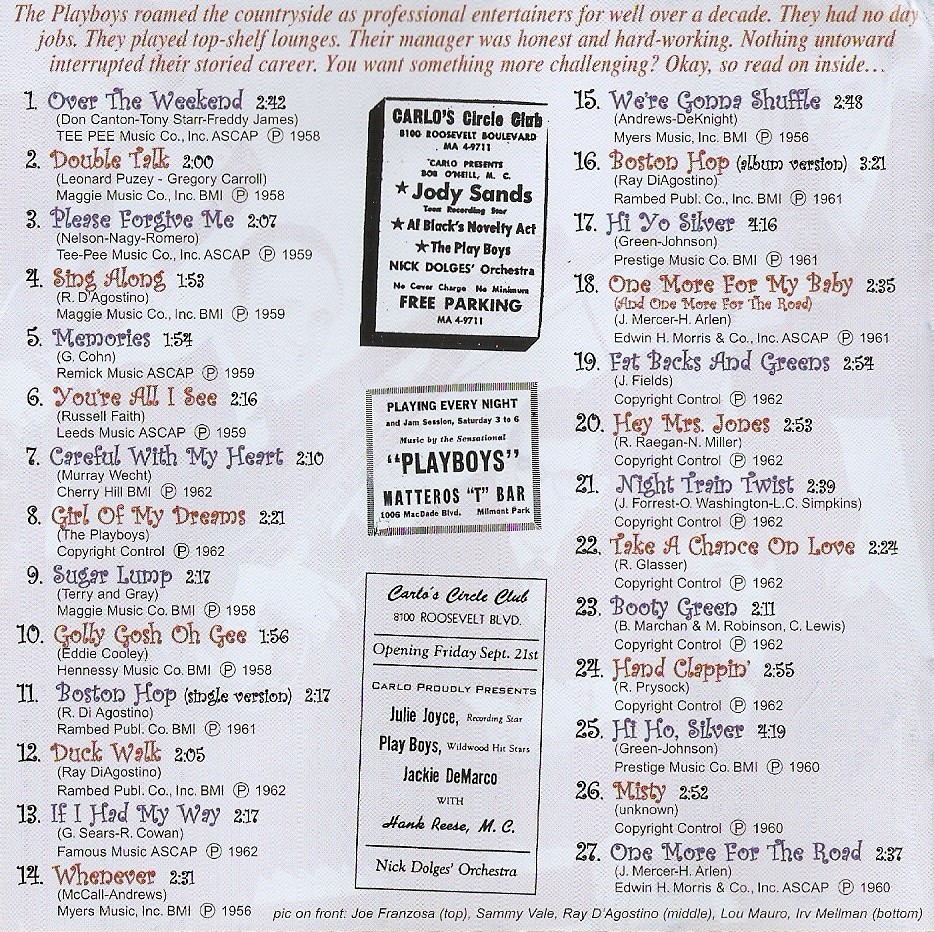 The Playboys roamed the countryside as professional entertainers for well over a decade. They had no day
jobs. They played top-shelf lounges. Their manager was honest and hard-working. Nothing untoward
interrupted their storied career. You want something more challenging? Okay, so read on inside...
1. Over The Weekend 2:42
(Don Canton-Tony Starr-Freddy James)
TEE PEE Music Co., Inc. ASCAP Ⓟ 1958
2. Double Talk 2:00
(Leonard Puzey - Gregory Carroll)
Maggie Music Co., Inc. BMI Ⓟ 1958
3. Please Forgive Me 2:07
(Nelson-Nagy-Romero)
Tee-Pee Music Co., Inc. ASCAP Ⓟ 1959
4. Sing Along 1:53
(R. D'Agostino)
Maggie Music Co., Inc. BMI Ⓟ 1959
5. Memories 1:54
(G. Cohn)
Remick Music ASCAP Ⓟ 1959
6. You're All I See 2:16
(Russell Faith)
Leeds Music ASCAP Ⓟ 1959
7. Careful With My Heart 2:10
(Murray Wecht)
Cherry Hill BMI Ⓟ 1962
8. Girl Of My Dreams 2:21
(The Playboys)
Copyright Control Ⓟ 1962
9. Sugar Lump 2:17
(Terry and Gray)
Maggie Music Co. BMI Ⓟ 1958
10. Golly Gosh Oh Gee 1:56
(Eddie Cooley)
Hennessy Music Co. BMI Ⓟ 1958
11. Boston Hop (single version) 2:17
(R. Di Agostino)
Rambed Publ. Co., Inc. BMI Ⓟ 1961
12. Duck Walk 2:05
(Ray DiAgostino)
Rambed Publ. Co., Inc. BMI Ⓟ 1962
13. If I Had My Way 2:17
(G. Sears-R. Cowan)
Famous Music ASCAP Ⓟ 1962
14. Whenever 2:31
(McCall-Andrews)
Myers Music, Inc. BMI Ⓟ 1956
CARLO'S Circle Club
8100 ROOSEVELT BOULEVARD
MA 4-9711
CARLO PRESENTS
BOB O'NEILL, M. C.
★ Jody Sands
Teen Recording Star
★ Al Black's Novelty Act
★ The Play Boys
NICK DOLGES' Orchestra
No Cover Charge No Minimum
FREE PARKING
MA 4-9711
PLAYING EVERY NIGHT
and Jam Session, Saturday 3 to 6
Music by the Sensational
"PLAYBOYS"
MATTEROS "T" BAR
1006 MacDade Blvd. Milmont Park
Carlo's Circle Club
8100 ROOSEVELT BLVD.
Opening Friday Sept. 21st
CARLO PROUDLY PRESENTS
Julie Joyce, Recording Star
Play Boys, Wildwood Hit Stars
Jackie DeMarco
WITH
Hank Reese, M. C.
Nick Dolges' Orchestra
15. We're Gonna Shuffle 2:48
(Andrews-DeKnight)
Myers Music, Inc. BMI Ⓟ 1956
16. Boston Hop (album version) 3:21
(Ray DiAgostino)
Rambed Publ. Co., Inc. BMI Ⓟ 1961
17. Hi Yo Silver 4:16
(Green-Johnson)
Prestige Music Co. BMI Ⓟ 1961
18. One More For My Baby 2:35
(And One More For The Road)
(J. Mercer-H. Arlen)
Edwin H. Morris & Co., Inc. ASCAP Ⓟ 1961
19. Fat Backs And Greens 2:54
(J. Fields)
Copyright Control Ⓟ 1962
20. Hey Mrs. Jones 2:53
(R. Raegan-N. Miller)
Copyright Control Ⓟ 1962
21. Night Train Twist 2:39
(J. Forrest-O. Washington-L.C. Simpkins)
Copyright Control Ⓟ 1962
22. Take A Chance On Love 2:24
(R. Glasser)
Copyright Control Ⓟ 1962
23. Booty Green 2:11
(B. Marchan & M. Robinson, C. Lewis)
Copyright Control Ⓟ 1962
24. Hand Clappin' 2:55
(R. Prysock)
Copyright Control Ⓟ 1962
25. Hi Ho, Silver 4:19
(Green-Johnson)
Prestige Music Co. BMI Ⓟ 1960
26. Misty 2:52
(unknown)
Copyright Control Ⓟ 1960
27. One More For The Road 2:37
(J. Mercer-H. Arlen)
Edwin H. Morris & Co., Inc. ASCAP Ⓟ 1960
pic on front: Joe Franzosa (top), Sammy Vale, Ray D'Agostino (middle), Lou Mauro, Irv Meilman (bottom)